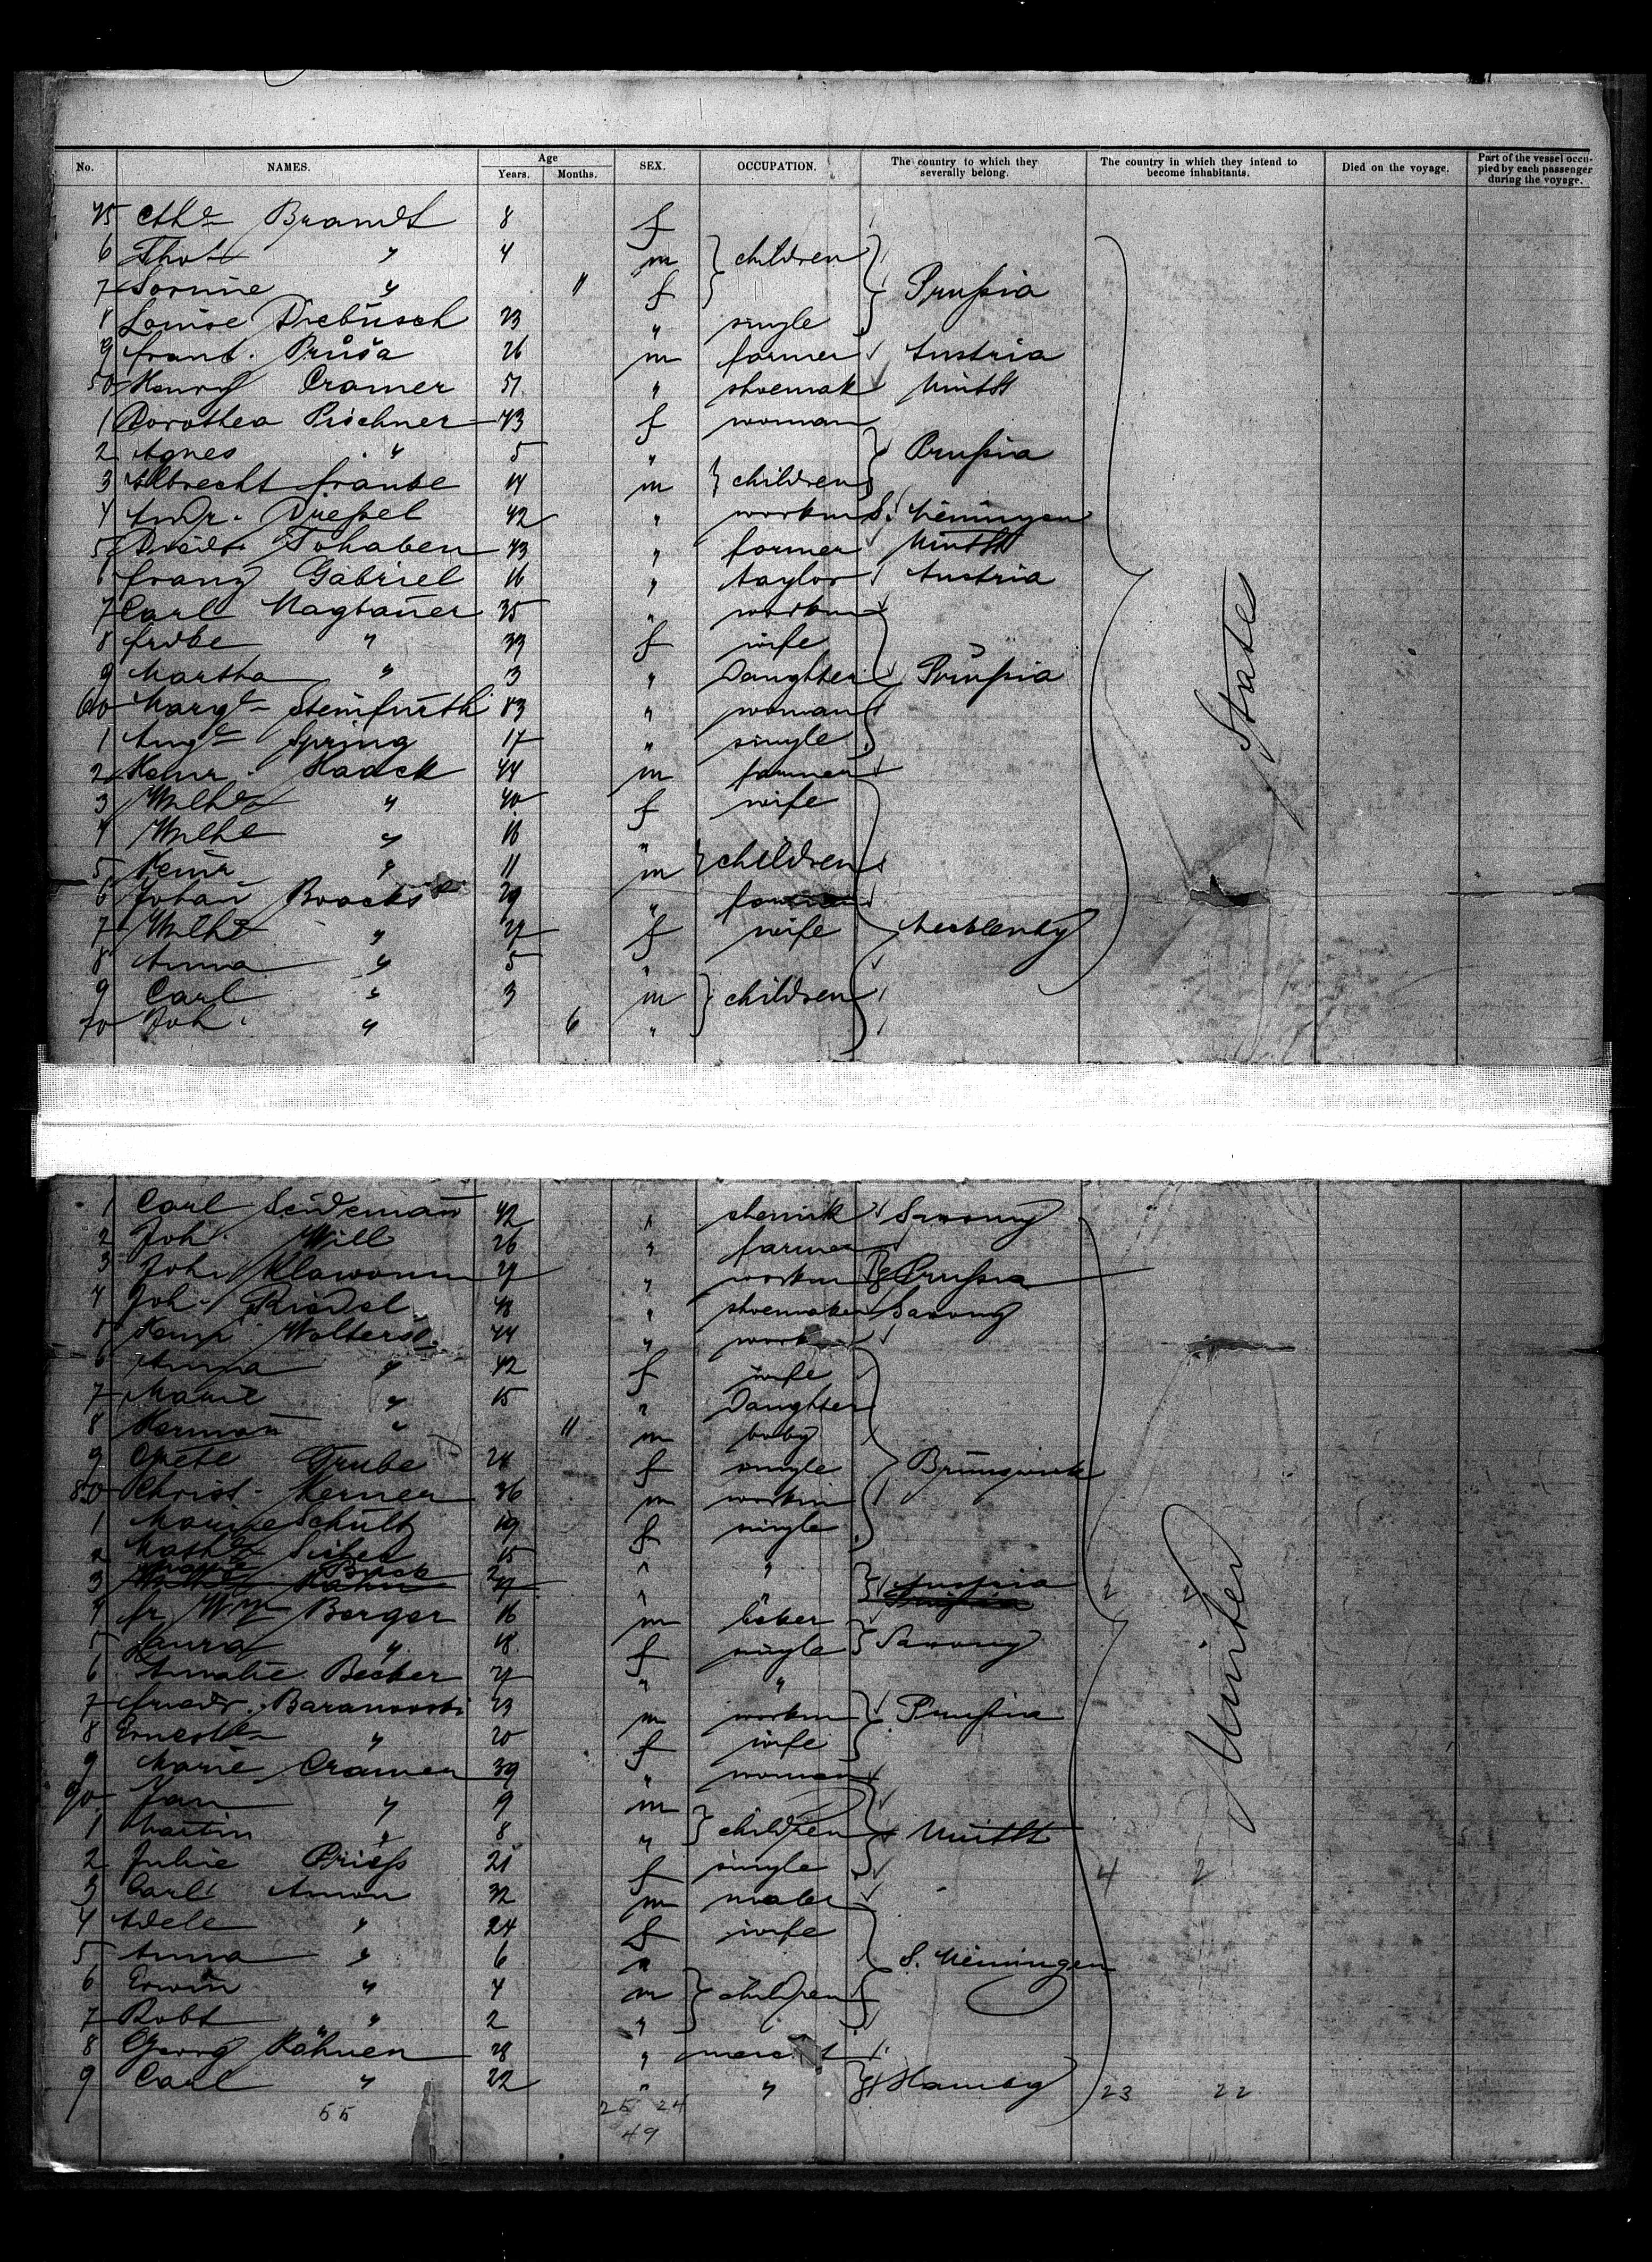 No. NAMES. Age Years. Months. SEX. OCCUPATION. The country to which they severally belong. The country in which they intend to become inhabitants. Died on the voyage. Part of the vessel occupied by each passenger during the voyage.
45 Brandt 8 f
6 " 4 m children
7 " 11 f Prußia
8 Louise 23 " single
9 Frant. Průša 26 m farmer Austria
50 Henry Cramer 51 " shoemak UnitSt
1 Dorothea Pischner 43 f woman
2 Agnes " 5 " Prußia
3 Albrecht Franke 14 m children
4 Andr. Drießel 42 " workm S. Meiningen
5 Tohaben 43 " farmer UnitSt
6 Franz Gabriel 16 " taylor Austria
7 Carl Magbauer 35 " workm
8 " 33 f wife
9 Martha " 3 " Daughter Prußia
60 Margt Steinfurth 43 " woman
1 Augt Spring 17 " single
2 Heinr. Haack 44 m farmer
3 Wilhe " 40 f wife
4 Wilhe " 16 "
5 Heinr " 11 m children
6 Johan Broocks 29 " farmer
7 Wilhe " 27 f wife Mecklenbg
8 Anna " 5 "
9 Carl " 3 m children
70 Joh. " 6 "
States
1 Carl Seideman 42 " Saxony
2 Joh. Will 26 " farmer
3 Joh. Klawonn 27 " workm Prußia
4 Joh. Riedel 48 " shoemaker Saxony
5 Wolters 44 " work
6 Anna " 42 f wife
7 Marie " 15 " Daughter
8 Herman " 11 m baby
9 Grete Grube 24 f single Brunswick
80 Christ. Kerner 36 m workm
1 Marie Schultz 19 f single
2 15 " "
3 Buck Hahn 27 " Austria 2 2
4 Fr. Wm Berger 16 m baker
5 Laura " 18 f single Saxony
6 Amalie Becker 27 " "
7 Friedr. Baranowski 23 m workm Prußia
8 " 20 f wife
9 Marie Cramer 39 " woman
90 Jan " 9 m
1 Martin " 8 " children UnitSt
2 Julie Prieß 21 f single 4 2
3 Carl Amon 32 m
4 Adele " 24 f wife
5 Anna " 6 " S. Meiningen
6 Erwin " 4 m children
7 Robt " 2 "
8 Georg Köhnen 28 "
9 Carl " 22 " " Hambg 23 22
United
55 25 24
49